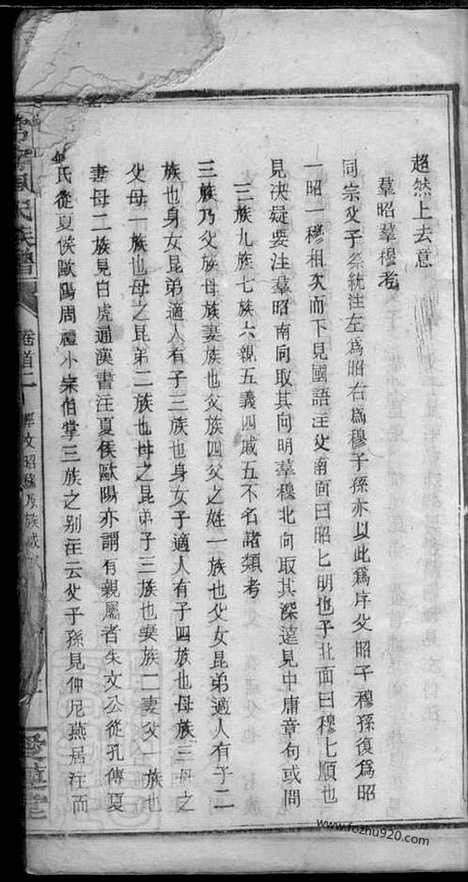 超然上去意
羣昭羣穆考
同宗父子祭統注左爲昭右爲穆子孫亦以此爲序父昭子穆孫復爲昭
一昭一穆相次而下見國語注父南面曰昭昭明也子北面曰穆穆順也
見决疑要注羣昭南向取其向明羣穆北向取其深遠見中庸章句或問
三族九族七族六親五義四戚五不名諸類考
三族乃父族母族妻族也父族四父之姓一族也父女昆弟適人有子二
族也身女昆弟適人有子三族也身女子適人有子四族也母族三母之
父母一族也母之昆弟二族也母之昆弟子三族也妻族二妻父一族也
妻母二族見白虎通漢書注夏侯歐陽亦謂有親屬者朱文公從孔傳夏
氏從夏侯歐陽周禮小宗伯掌三族之别注云父子孫見仲尼燕居注而
氏族譜
卷首二
昭穆及族戚
堂
www.fozhu920.com